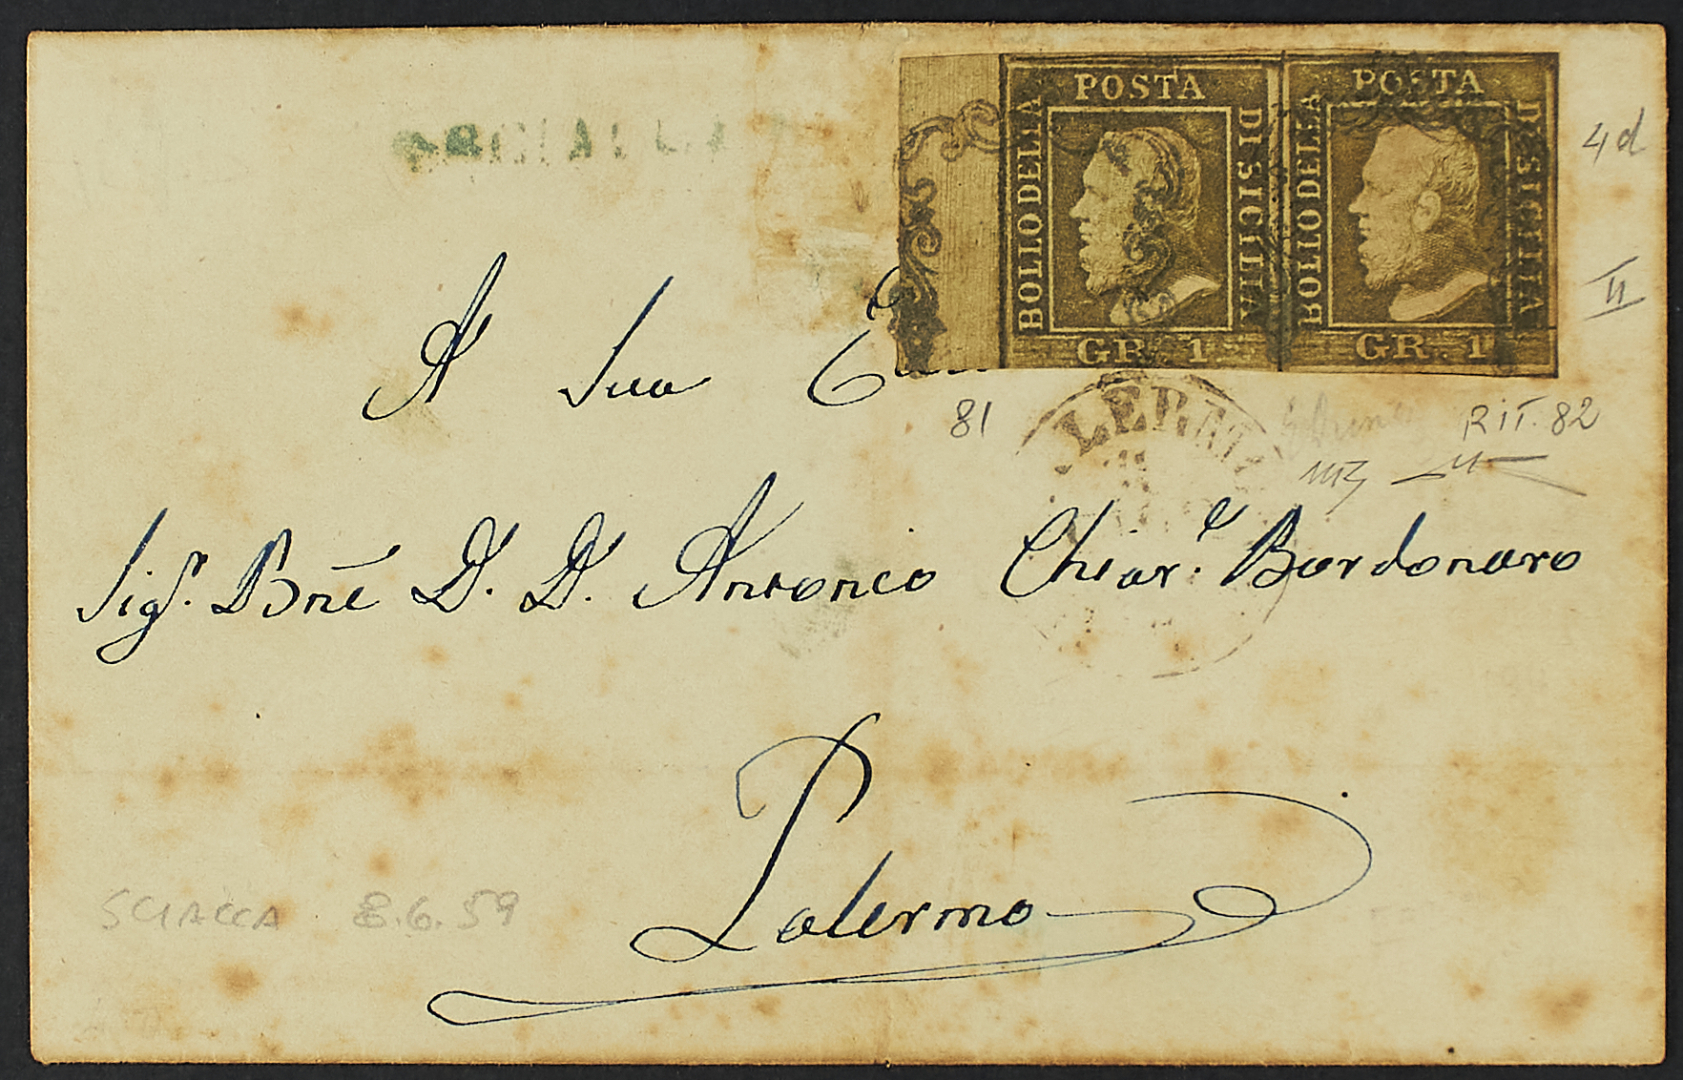 SCIACCA
POSTA
BOLLO DELLA
DI SICILIA
GR. 1
POSTA
BOLLO DELLA
DI SICILIA
GR. 1
4d
II
A Sua
81
RIT. 82
Sigr. Bne D. D. Antonio Chiar.e Bordonaro
Palermo
SCIACCA 8.6.59